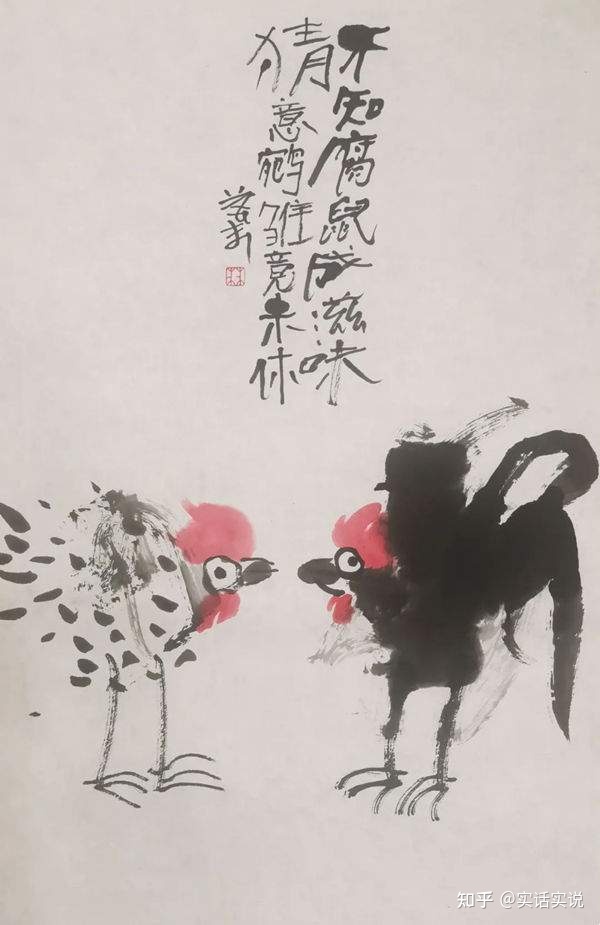 不知腐鼠成滋味
猜意鹓雏竟未休
知乎 @实话实说